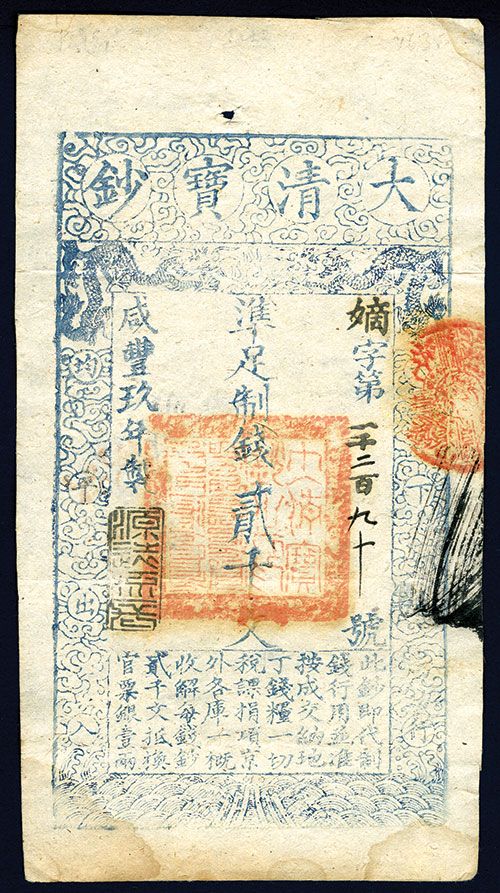 大清寶鈔
嫡字第一千二百九十號
準足制錢貳千文
咸豐玖年製
此鈔即代制
錢行用並准
按成交納地
丁錢糧一切
稅課捐項京
外各庫一概
收解每錢鈔
貳千文抵換
官票銀壹兩
均平出入